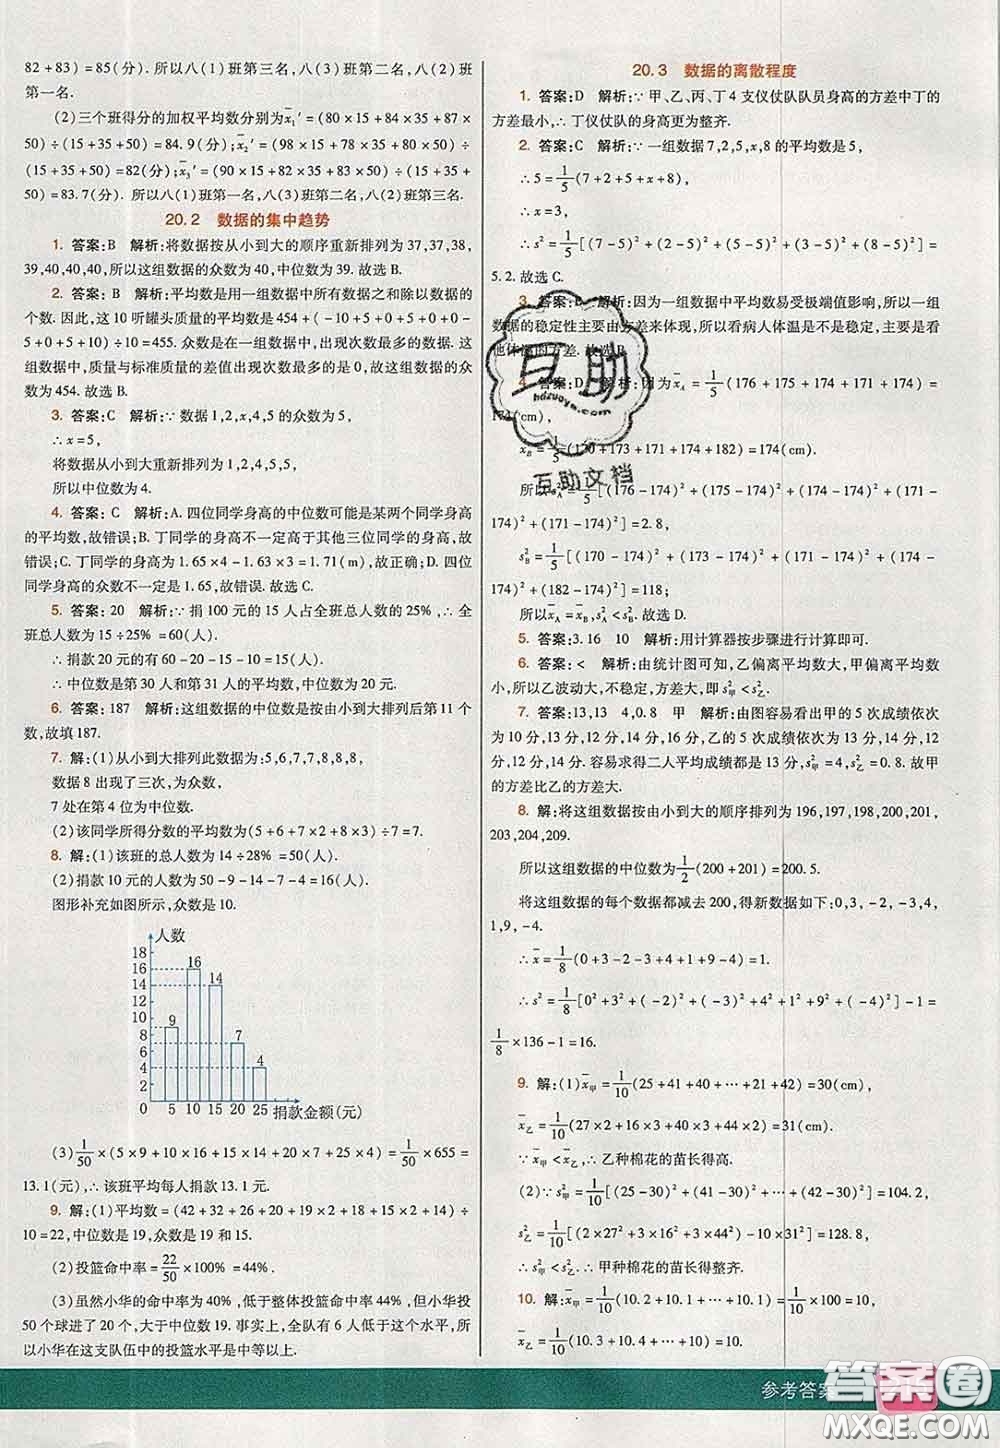 82+83)=85(分). 所以八(1)班第三名,八(3)班第二名,八(2)班
第一名.
(2)三个班得分的加权平均数分别为x̄₁′=(80×15+84×35+87×
50)÷(15+35+50)=84.9(分);x̄₂′=(98×15+78×35+80×50)÷
(15+35+50)=82(分);x̄₃′=(90×15+82×35+83×50)÷(15+35
+50)=83.7(分). 所以八(1)班第一名,八(3)班第二名,八(2)班第三名.
20.2 数据的集中趋势
1. 答案:B 解析:将数据按从小到大的顺序重新排列为37,37,38,
39,40,40,40,所以这组数据的众数为40,中位数为39.故选B.
2. 答案:B 解析:平均数是用一组数据中所有数据之和除以数据的
个数. 因此,这10听罐头质量的平均数是454+(-10+5+0+5+0+0-
5+0+5+10)÷10=455. 众数是在一组数据中,出现次数最多的数据.
这组数据中,质量与标准质量的差值出现次数最多的是0,故这组数据的
众数为454. 故选B.
3. 答案:C 解析:∵数据1,2,x,4,5的众数为5,
∴x=5,
将数据从小到大重新排列为1,2,4,5,5,
所以中位数为4.
4. 答案:C 解析:A. 四位同学身高的中位数可能是某两个同学身高
的平均数,故错误;B. 丁同学的身高不一定高于其他三位同学的身高,故
错误;C. 丁同学的身高为1.65×4-1.63×3=1.71(m),正确;D. 四位
同学身高的众数不一定是1.65,故错误. 故选C.
5. 答案:20 解析:∵捐100元的15人占全班总人数的25%,∴全
班总人数为15÷25%=60(人).
∴捐款20元的有60-20-15-10=15(人),
∴中位数是第30人和第31人的平均数,中位数为20元.
6. 答案:187 解析:这组数据的中位数是按由小到大排列后第11个
数,故填187.
7. 解:(1)从小到大排列此数据为:5,6,7,7,8,8,8,
数据8出现了三次,为众数,
7处在第4位为中位数.
(2)该同学所得分数的平均数为(5+6+7×2+8×3)÷7=7.
8. 解:(1)该班的总人数为14÷28%=50(人).
(2)捐款10元的人数为50-9-14-7-4=16(人).
图形补充如图所示,众数是10.
人数
18
16
14
12
10
8
6
4
2
0
9
16
14
7
4
5 10 15 20 25 捐款金额(元)
(3)1/50×(5×9+10×16+15×14+20×7+25×4)=1/50×655=
13.1(元),∴该班平均每人捐款13.1元.
9. 解:(1)平均数=(42+33+26+19×2+18+15×2+14+19)÷
10=22,中位数是19,众数是19和15.
(2)投篮命中率=22/50×100%=44%.
(3)虽然小华的命中率为40%,低于整体投篮命中率44%,但小华投
50个球进了20个,大于中位数19. 事实上,全队有6人低于这个水平,所
以小华在这支队伍中的投篮水平是中等以上.
20.3 数据的离散程度
1. 答案:D 解析:∵甲、乙、丙、丁4支仪仗队队员身高的方差中丁的
方差最小,∴丁仪仗队的身高更为整齐.
2. 答案:C 解析:∵一组数据7,2,5,x,8的平均数是5,
∴5=1/5(7+2+5+x+8),
∴x=3,
∴s²=1/5[(7-5)²+(2-5)²+(5-5)²+(3-5)²+(8-5)²]=
5.2. 故选C.
3. 答案:B 解析:因为一组数据中平均数易受极端值影响,所以一组
数据的稳定性主要由方差来体现,所以看病人体温是不是稳定,主要是看
他体温的方差. 故选B.
4. 答案:D 解析:因为x̄A=1/5(176+175+174+171+174)=
174(cm),
x̄B=1/5(170+173+171+174+182)=174(cm).
所以s²A=1/5[(176-174)²+(175-174)²+(174-174)²+(171-
174)²+(171-174)²]=2.8,
s²B=1/5[(170-174)²+(173-174)²+(171-174)²+(174-
174)²+(182-174)²]=118;
所以x̄A=x̄B,s²A<s²B. 故选D.
5. 答案:3.16 10 解析:用计算器按步骤进行计算即可.
6. 答案:< 解析:由统计图可知,乙偏离平均数大,甲偏离平均数
小,所以乙波动大,不稳定,方差大,即s²甲<s²乙.
7. 答案:13,13 4,0.8 甲 解析:由图容易看出甲的5次成绩依次
为10分,13分,12分,14分,16分,乙的5次成绩依次为13分,14分,12
分,12分,14分. 容易求得二人平均成绩都是13分,s²甲=4,s²乙=0.8. 故甲
的方差比乙的方差大.
8. 解:将这组数据按由小到大的顺序排列为196,197,198,200,201,
203,204,209.
所以这组数据的中位数为1/2(200+201)=200.5.
将这组数据的每个数据都减去200,得新数据如下:0,3,-2,-3,4,
1,9,-4.
∴x̄=1/8(0+3-2-3+4+1+9-4)=1.
∴s²=1/8[0²+3²+(-2)²+(-3)²+4²+1²+9²+(-4)²]-1=
1/8×136-1=16.
9. 解:(1)x̄甲=1/10(25+41+40+…+21+42)=30(cm),
x̄乙=1/10(27×2+16×3+40×3+44×2)=31(cm).
∵x̄甲<x̄乙,∴乙种棉花的苗长得高.
(2)∵s²甲=1/10[(25-30)²+(41-30)²+…+(42-30)²]=104.2,
s²乙=1/10[(2×27²+3×16²+3×40²+2×44²)-10×31²]=128.8,
∴s²甲<s²乙.∴甲种棉花的苗长得整齐.
10. 解:x̄甲=1/10(10.2+10.1+…+10.1)=1/10×100=10,
x̄乙=1/10(10.3+10.4+…+10)=10.
互助
hdzuoye.com
互助文档
参考答案
答案圈
MXQE.COM